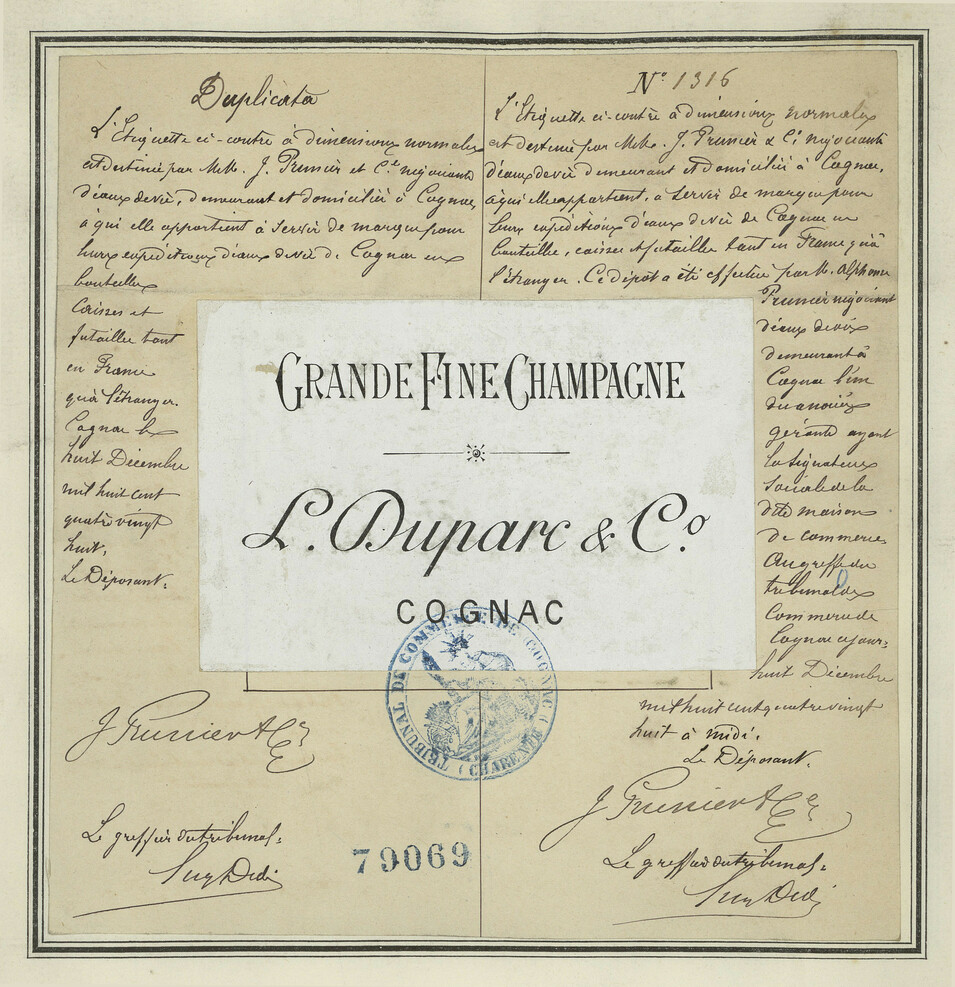 Duplicata
L'Etiquette ci-contre à dimensions normales
est destinée par M.M. J. Prunier et Cie négociants
d'eaux de vie, demeurant et domiciliés à Cognac,
à qui elle appartient à servir de marque pour
leurs expéditions d'eaux de vie de Cognac en
bouteilles
caisses et
futailles tant
en France
qu'à l'étranger.
Cognac le
huit Décembre
mil huit cent
quatre vingt
huit.
Le Déposant.
J Prunier & Cie
Le greffier du tribunal.
N° 1316
L'Etiquette ci-contre à dimensions normales
est destinée par M.M. J. Prunier & Cie négociants
d'eaux de vie demeurant et domiciliés à Cognac,
à qui elle appartient, à servir de marque pour
leurs expéditions d'eaux de vie de Cognac en
bouteilles, caisses et futailles tant en France qu'à
l'étranger. Ce dépôt a été effectué par M. Alphonse
Prunier négociant
d'eaux de vie
demeurant à
Cognac l'un
des associés
gérants ayant
la signature
sociale de la
dite maison
de commerce
Au greffe du
tribunal de
Commerce de
Cognac ce jour
huit Décembre
mil huit cent quatre vingt
huit à midi.
Le Déposant.
J Prunier & Cie
Le greffier du tribunal.
GRANDE FINE CHAMPAGNE
L. Duparc & Co.
COGNAC
TRIBUNAL DE COMMERCE DE COGNAC (CHARENTE)
79069